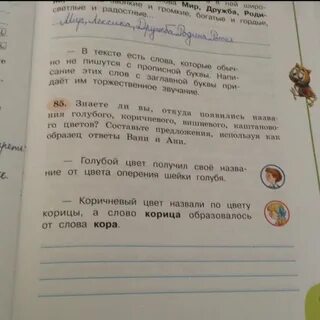 звонкие и громкие, богатые и гордые,
светлые и радостные... Мир, Дружба, Роди-
Мир, Лексика, Дружба, Родина,
— В тексте есть слова, которые обыч-
но не пишутся с прописной буквы. Напи-
сание этих слов с заглавной буквы при-
даёт им торжественное звучание.
85. Знаете ли вы, откуда появились назва-
ния голубого, коричневого, вишневого, каштаново-
го цветов? Составьте предложения, используя как
образец ответы Вани и Ани.
— Голубой цвет получил своё назва-
ние от цвета оперения шейки голубя.
— Коричневый цвет назвали по цвету
корицы, а слово корица образовалось
от слова кора.